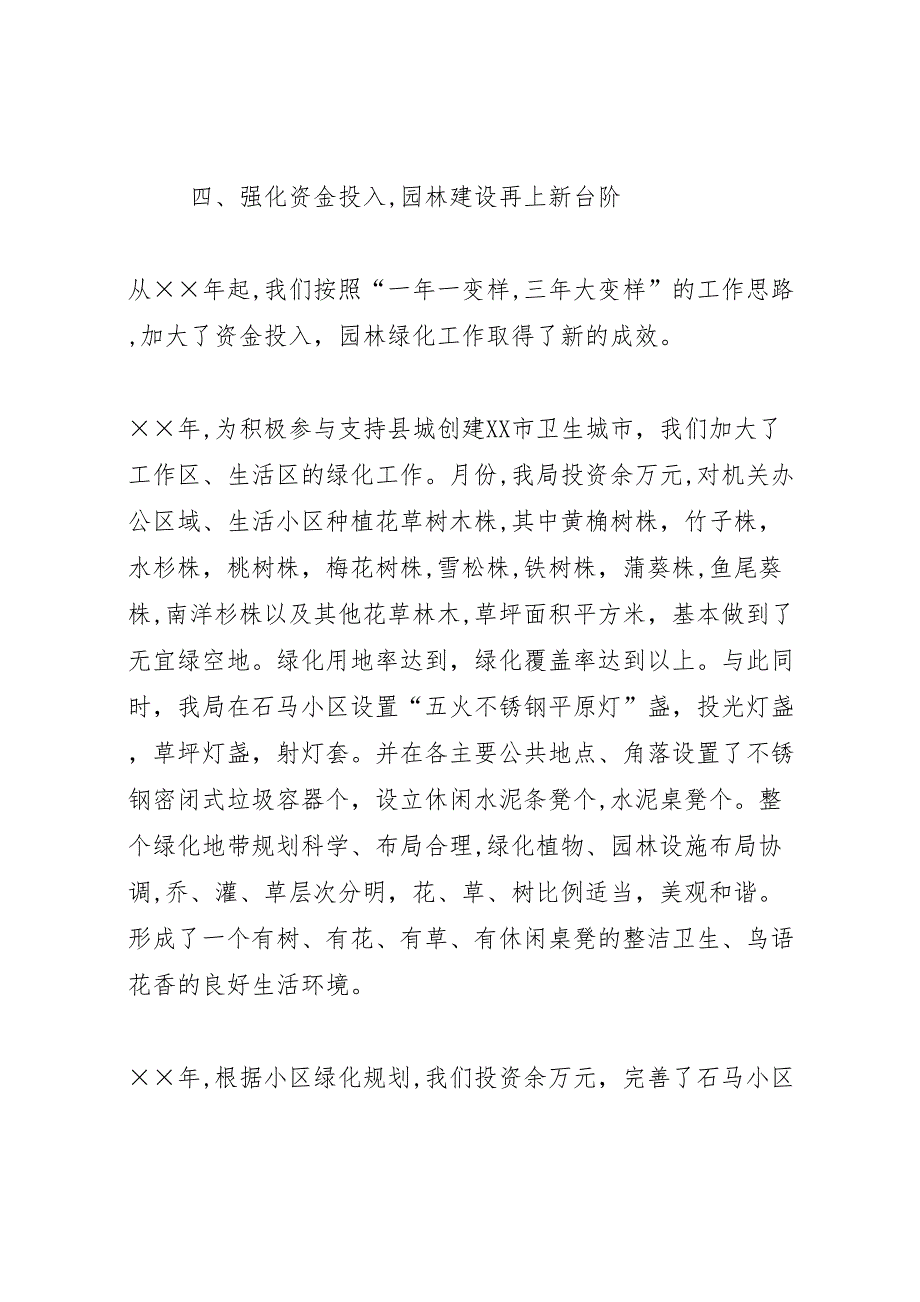 四、强化资金投入,园林建设再上新台阶
从××年起,我们按照“一年一变样,三年大变样”的工作思路
,加大了资金投入，园林绿化工作取得了新的成效。
××年,为积极参与支持县城创建XX市卫生城市，我们加大了
工作区、生活区的绿化工作。月份,我局投资余万元,对机关办
公区域、生活小区种植花草树木株,其中黄桷树株，竹子株，
水杉株，桃树株，梅花树株,雪松株,铁树株，蒲葵株,鱼尾葵
株,南洋杉株以及其他花草林木,草坪面积平方米，基本做到了
无宜绿空地。绿化用地率达到，绿化覆盖率达到以上。与此同
时，我局在石马小区设置“五火不锈钢平原灯”盏，投光灯盏
，草坪灯盏，射灯套。并在各主要公共地点、角落设置了不锈
钢密闭式垃圾容器个，设立休闲水泥条凳个,水泥桌凳个。整
个绿化地带规划科学、布局合理,绿化植物、园林设施布局协
调,乔、灌、草层次分明，花、草、树比例适当，美观和谐。
形成了一个有树、有花、有草、有休闲桌凳的整洁卫生、鸟语
花香的良好生活环境。
××年,根据小区绿化规划,我们投资余万元，完善了石马小区